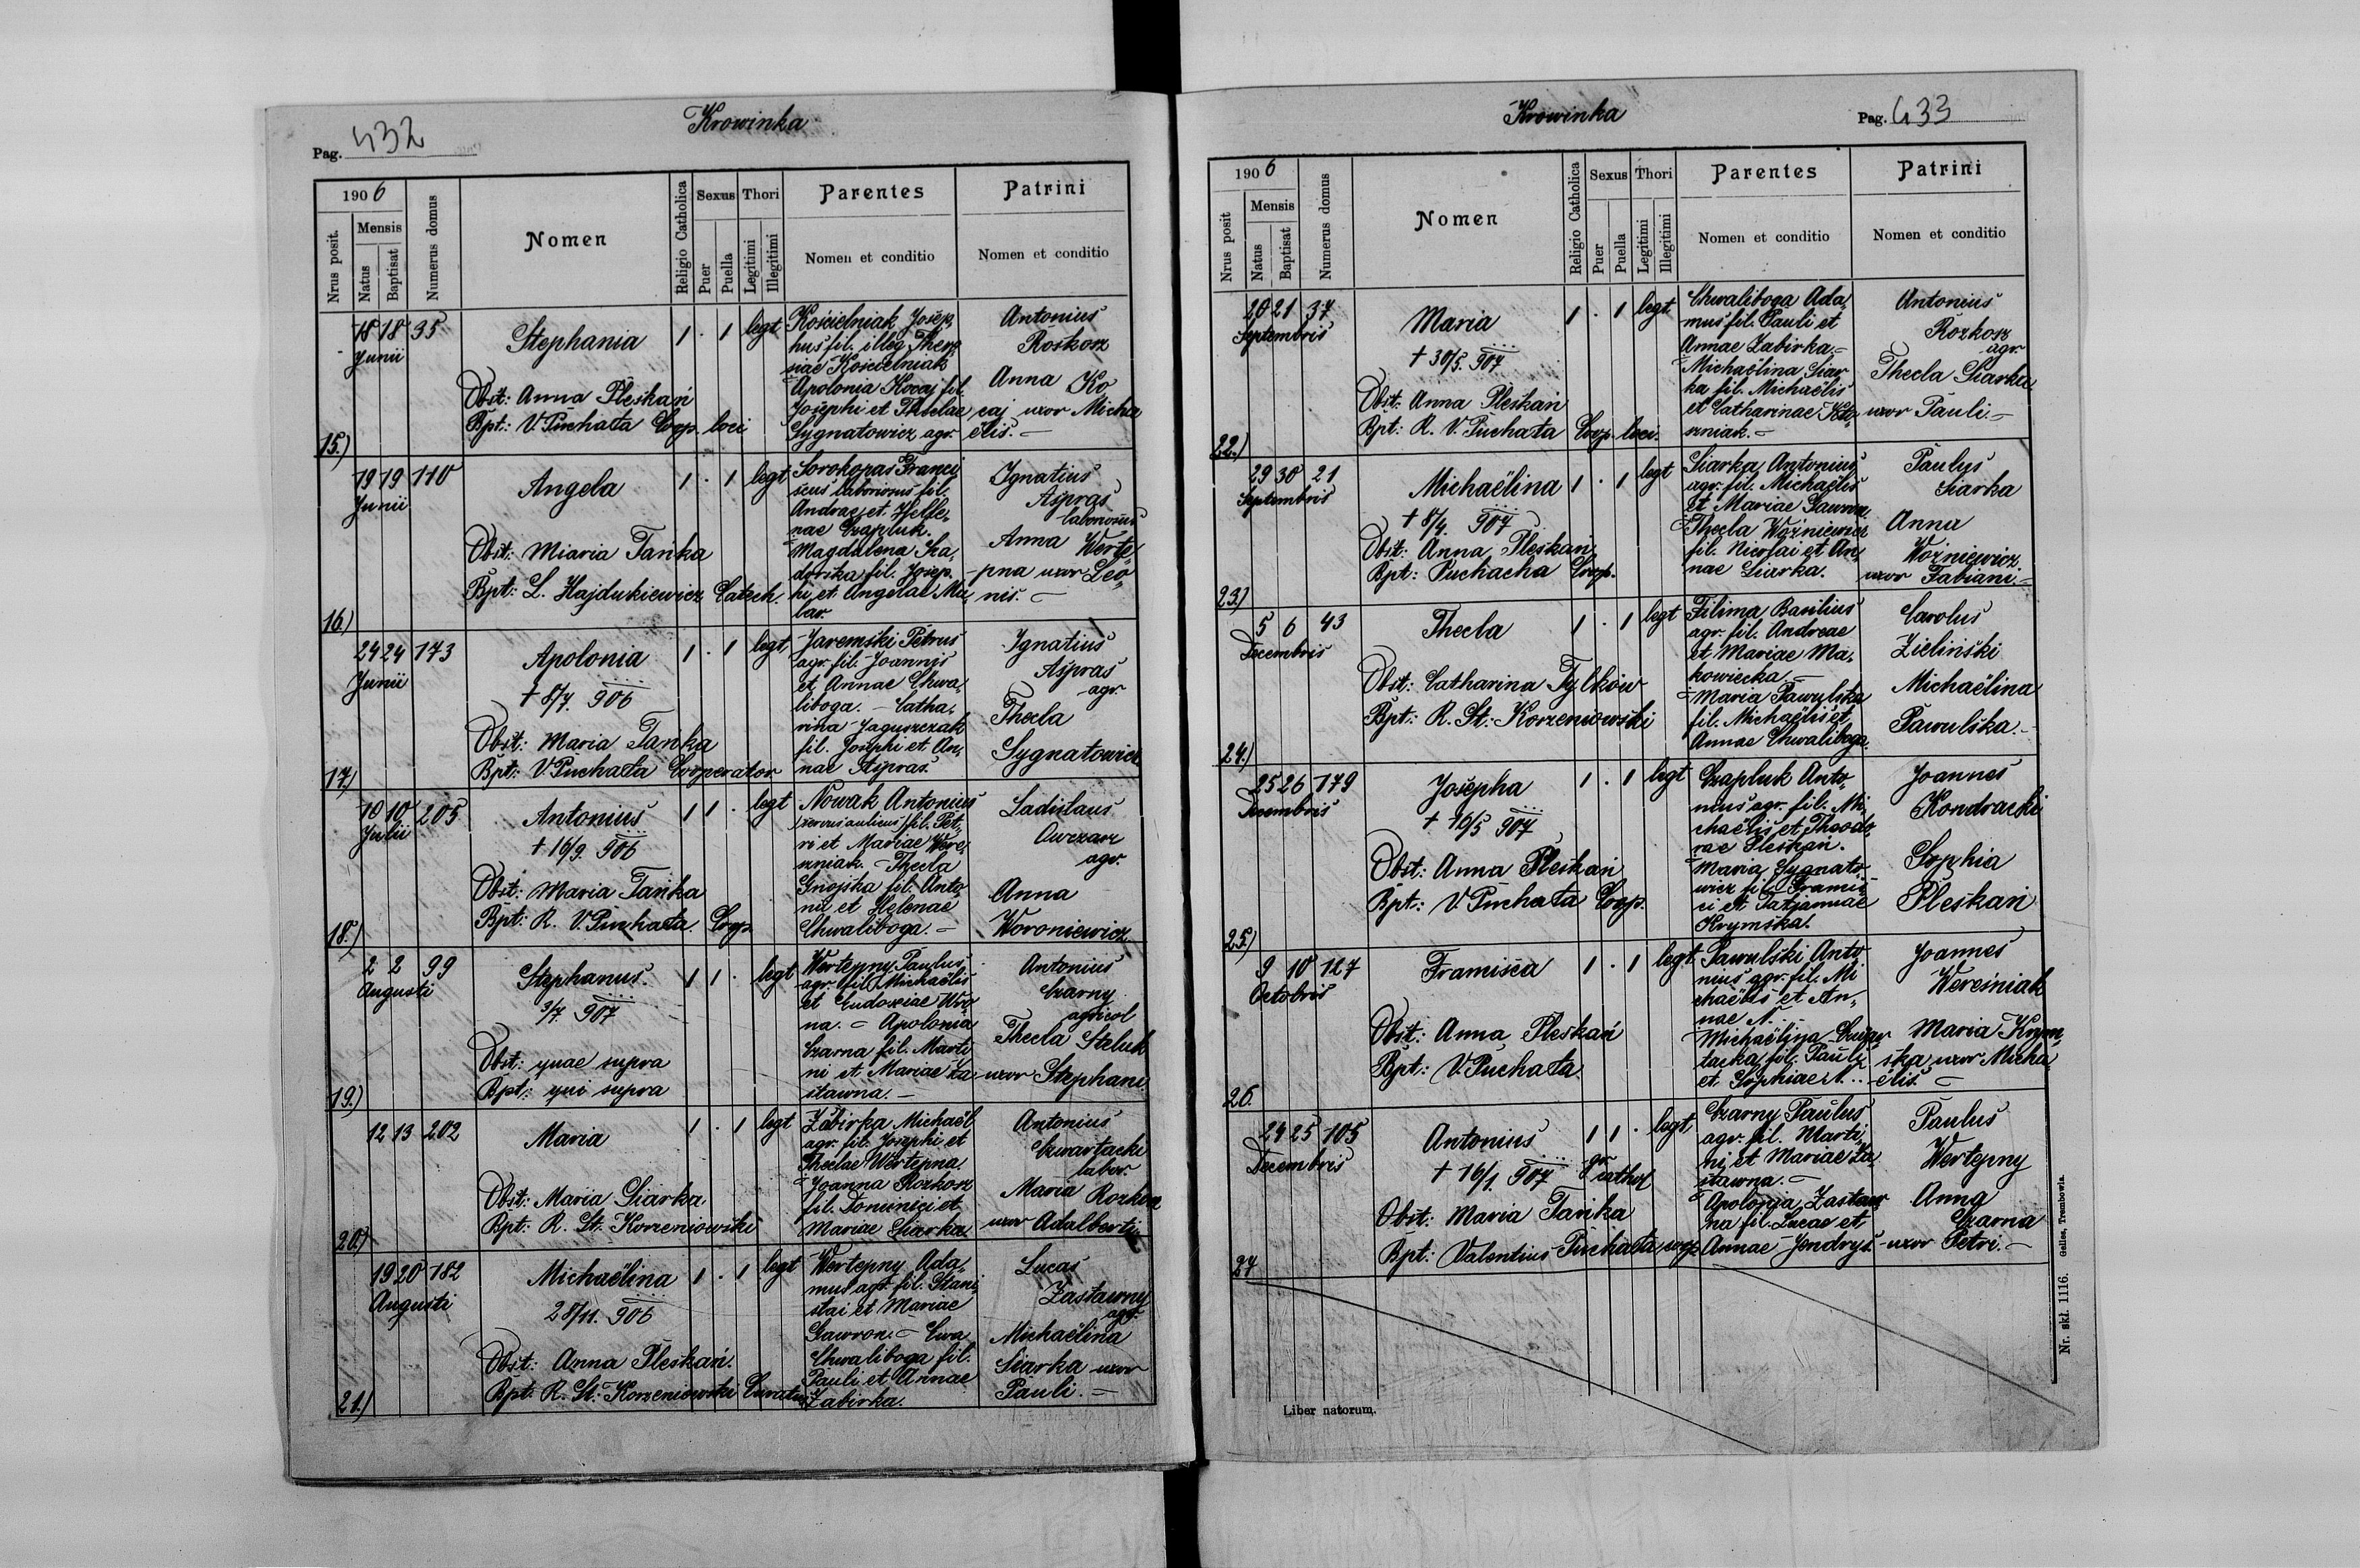 Krowinka
Pag. 432
1906
Nrus posit.
Mensis
Natus
Baptisat
Numerus domus
Nomen
Religio Catholica
Sexus
Puer
Puella
Thori
Legitimi
Illegitimi
Parentes
Nomen et conditio
Patrini
Nomen et conditio
15.)
18 18 35
Junii
Stephania
Obst: Anna Pleskań
Bpt: V. Puchała Coop. loci
1 . 1 legt
Kościelniak Josep,
hus fil. illeg. There,
siae Kościelniak
Apolonia Kocaj fil.
Josephi et Theclae
Sygnatowicz agr.
Antonius
Roskosz
Anna Ko
caj uxor Micha
ëlis. —
16)
19 19 110
Junii
Angela
Obst: Miaria Tańka
Bpt: L. Hajdukiewicz Catech.
1 . 1 legt
Sorokopas Franci
scus laboriosus fil.
Andrae et Hele,
nae Czapluk.
Magdalena Sza,
dorska fil. Josep.
hi et Angelae Mu
lar.
Ignatius
Aspras
laboriosus
Anna Werte
pna uxor Leo,
nis. —
17)
24 24 173
Junii
Apolonia
+ 8/7. 906
Obst: Maria Tańka
Bpt: V. Puchała Cooperator
1 . 1 legt
Jaremski Petrus
agr. fil. Joannis
et Annae Chwa,
liboga. — Catha,
rina Jaguszczak
fil. Josephi et An,
nae Aspras.
Ignatius
Aspras
agr.
Thecla
Sygnatowicz
18.)
10 10 205
Julii
Antonius
+ 16/9. 906
Obst: Maria Tańka
Bpt: R. V. Puchała. Coop.
1 1 . legt
Nowak Antonius
(servus aulicus) fil. Pet,
ri et Mariae Were,
szniak. — Thecla
Gnojska fil. Anto
nii et Helenae
Chwaliboga. —
Ladislaus
Owczarz
agr.
Anna
Woroniewicz
19.)
2 2 99
Augusti
Stephanus.
3/7. 907
Obst: quae supra
Bpt: qui supra
1 1 . legt
Wertepny Paulus
agr. fil. Michaëlis
et Eudoxiae Wro
na. — Apolonia
Czarna fil. Marti
ni et Mariae Za
stawna. —
Antonius
Czarny
agricol
Thecla Steluk
uxor Stephani
20.)
12 13 202
Maria
Obst: Maria Siarka
Bpt: R. St. Korzeniowski
1 . 1 legt
Zabirka Michaël
agr. fil. Josephi et
Theclae Wertepna.
Joanna Rozkosz
fil. Dominici et
Mariae Siarka
Antonius
Czwartacki
labor.
Maria Rozkosz
uxor Adalberti
21.)
19 20 182
Augusti
Michaëlina
28/11. 906
Obst: Anna Pleskań.
Bpt: R. St. Korzeniowski Curatus
1 . 1 legt
Wertepny Ada,
mus agr. fil. Stani,
slai et Mariae
Gawron. — Ewa
Chwaliboga fil.
Pauli et Annae
Zabirka.
Lucas
Zastawny
agr.
Michaëlina
Siarka uxor
Pauli. —
Krowinka
Pag. 433
1906
Nrus posit
Mensis
Natus
Baptisat
Numerus domus
Nomen
Religio Catholica
Sexus
Puer
Puella
Thori
Legitimi
Illegitimi
Parentes
Nomen et conditio
Patrini
Nomen et conditio
22.)
20 21 37
Septembris
Maria
+ 30/5. 907
Obst: Anna Pleskań
Bpt: R. V. Puchała Coop. loci.
1 . 1 legt
Chwaliboga Ada,
mus fil. Pauli et
Annae Zabirka. —
Michaëlina Siar
ka fil. Michaëlis
et Catharinae
szniak. —
Antonius
Rozkosz
agr.
Thecla Siarka
uxor Pauli —
23.)
29 30 21
Septembris
Michaëlina
+ 8/4. 907
Obst: Anna Pleskań
Bpt: Puchacha Coop.
1 . 1 legt
Siarka Antonius
agr. fil. Michaëlis
et Mariae Gawron.
Thecla Woźniewicz
fil. Nicolai et An,
nae Siarka.
Paulus
Siarka
Anna
Woźniewicz
uxor Fabiani —
24.)
5 6 43
Decembris
Thecla
Obst: Catharina Tylków
Bpt: R. St. Korzeniowski
1 . 1 legt
Filima Basilius
agr. fil. Andreae
et Mariae Ma,
kowiecka. —
Maria Pawulska
fil. Michaëlis et
Annae Chwaliboga.
Carolus
Zieliński
Michaëlina
Pawulska. —
25.)
25 26 179
Decembris
Josepha
+ 19/5 907
Obst: Anna Pleskań
Bpt: V. Puchała Coop.
1 . 1 legt
Czapluk Anto,
nius agr. fil. Mi,
chaëlis et Theodo,
rae Pleskań.
Maria Sygnato
wicz fil. Francis
ci et Tatjannae
Krymska.
Joannes
Kondracki
Sophia
Pleskań
26.
9 10 127
Octobris
Francisca
Obst: Anna Pleskań
Bpt: V. Puchała.
1 . 1 legt
Pawulski Anto
nius agr. fil. Mi
chaëlis et An,
nae N.
Michaëlina
tacka fil. Pauli
et Sophiae N. ..
Joannes
Werezniak
Maria Krym,
ska uxor Micha
ëlis. —
27
24 25 105
Decembris
Antonius
+ 16/1. 907
Obst: Maria Tańka
Bpt: Valentius Puchała coop.
1 1 . legt
gr cathol
Czarny Paulus
agr. fil. Marti,
ni et Mariae Za,
stawna. —
Apolonia Zastaw
na fil. Lucae et
Annae Jendrys.
Paulus
Wertepny
Anna
Czarna
uxor Petri. —
Liber natorum.
Nr. skł. 1116. Galles, Trembowla.